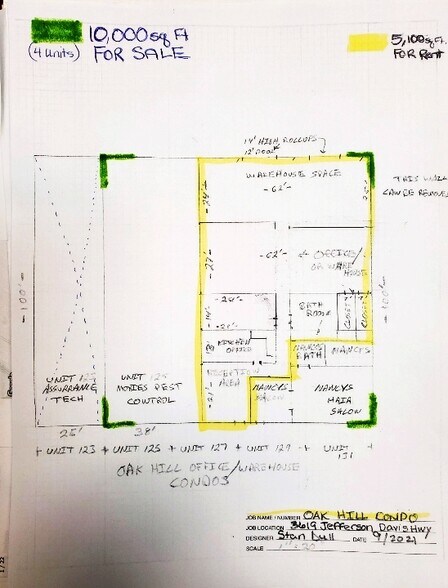 10,000 sq ft
(4 units) FOR SALE
5,100 sq ft.
FOR Rent
14' HIGH ROLLUPS
12' DOOR
WAREHOUSE SPACE
-62'-
THIS WALL
CAN BE REMOVED
-62'- ← OFFICE/
OR WARE
HOUSE
-100'-
-27'-
BATH
ROOM
CLOSET
CLOSET
KITCHEN
OFFICE
NANCYS
BATH
NANCYS
RECEPTION
AREA
UNIT 123
ASSURRANCE
TECH
UNIT 125
MOXIES PEST
CONTROL
NANCYS
SALON
NANCYS
HAIR
SALON
-100'-
-21'-
25' 38'
UNIT 123 UNIT 125 UNIT 127 UNIT 129 UNIT
131
OAK HILL OFFICE/WAREHOUSE
CONDOS
JOB NAME / NUMBER OAK HILL CONDO
JOB LOCATION 3619 Jefferson Davis Hwy
DESIGNER Stan Dull DATE 9/2021
SCALE 1" = 20'